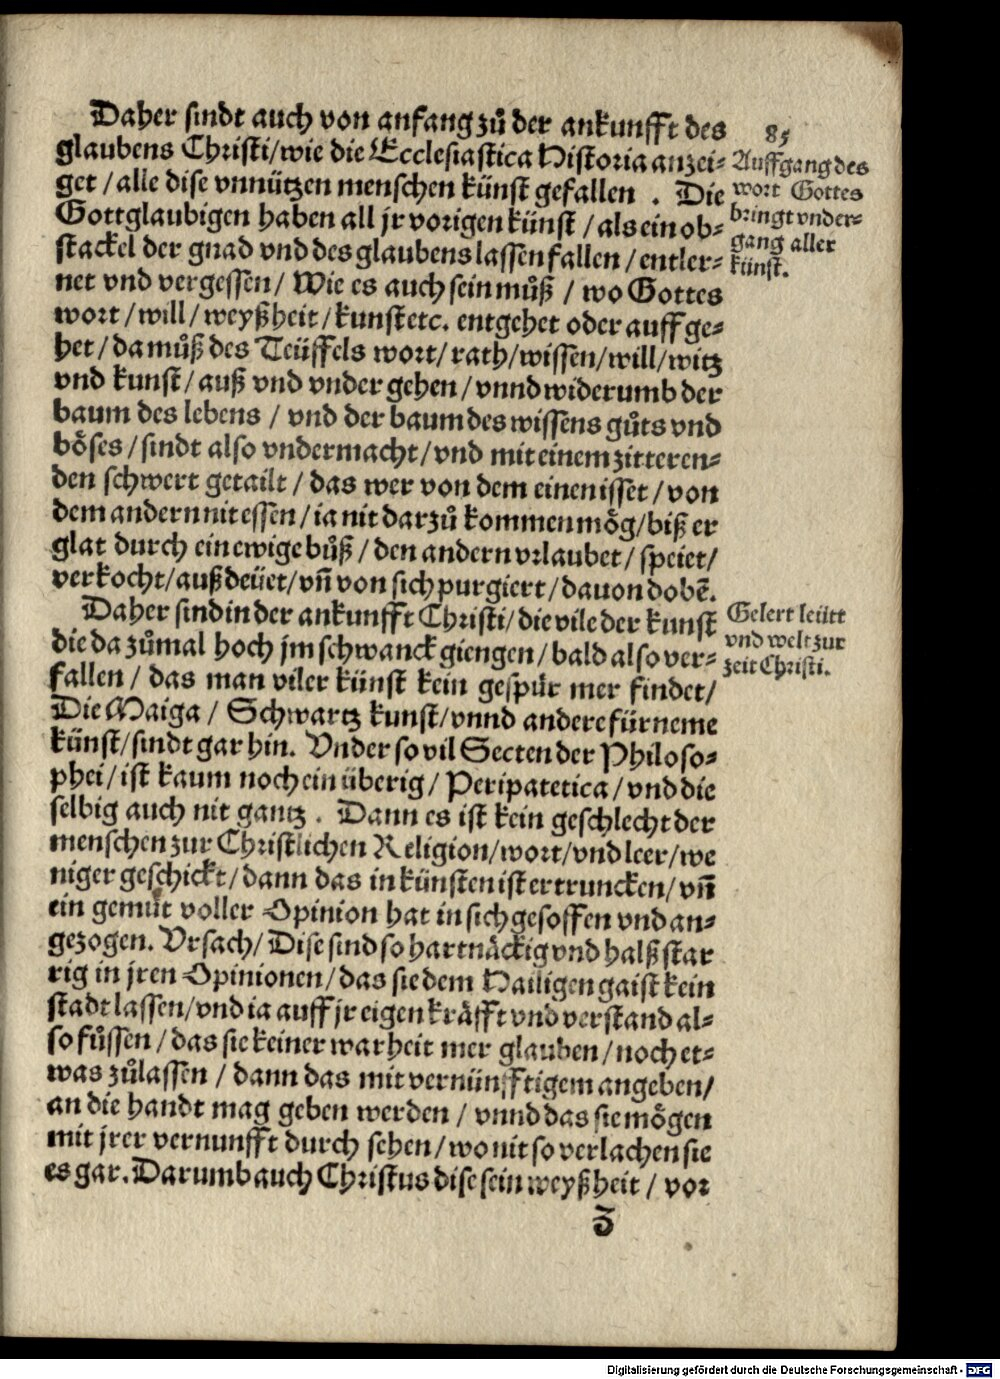 Daher sindt auch von anfang zů der ankunfft des
glaubens Christi/wie die Ecclesiastica Historia anzei-
get/alle dise vnnützen menschen künst gefallen . Die
Gottglaubigen haben all jr vorigen künst/als ein ob-
stackel der gnad vnd des glaubens lassen fallen/entler-
net vnd vergessen/ Wie es auch sein můß/wo Gottes
wort/will/weyßheit/kunst etc. entgehet oder auff ge-
het/da můß des Teüffels wort/rath/wissen/will/witz
vnd kunst/auß vnd vnder gehen/vnnd widerumb der
baum des lebens/vnd der baum des wissens gůts vnd
böses/sindt also vndermacht/vnd mit einem zitteren-
den schwert getailt/das wer von dem einen isset/von
dem andern nit essen/ia nit darzů kommen mög/biß er
glat durch ein ewige bůß/den andern vrlaubet/speiet/
verkocht/auß deüet/vñ von sich purgiert/dauon dobẽ.
Daher sind in der ankunfft Christi/die vile der kunst
die da zůmal hoch jm schwanck giengen/bald also ver-
fallen/das man viler künst kein gespür mer findet/
Die Maiga/Schwartz kunst/vnnd andere fürneme
künst/sindt gar hin. Vnder so vil Secten der Philoso-
phei/ist kaum noch ein überig/Peripatetica/vnd die
selbig auch nit gantz . Dann es ist kein geschlecht der
menschen zur Christlichen Religion/wort/vnd leer/we
niger geschickt/dann das in künsten ist ertruncken/vñ
ein gemüt voller Opinion hat in sich gesoffen vnd an-
gezogen. Vrsach/Dise sind so hartnäckig vnd halßstar
rig in jren Opinionen/das sie dem Hailigen gaist kein
stadt lassen/vnd ia auff jr eigen kräfft vnd verstand al-
so fůssen/das sie keiner warheit mer glauben/noch et-
was zůlassen/dann das mit vernünfftigem angeben/
an die handt mag geben werden/vnnd das sie mögen
mit jrer vernunfft durch sehen/wo nit so verlachen sie
es gar. Darumb auch Christus dise sein weyßheit/vor
Z
85
Auffgang des
wort Gottes
bringt vnder-
gang aller
künst.
Gelert leütt
vnd welt zur
zeit Christi.
Digitalisierung gefördert durch die Deutsche Forschungsgemeinschaft - DFG